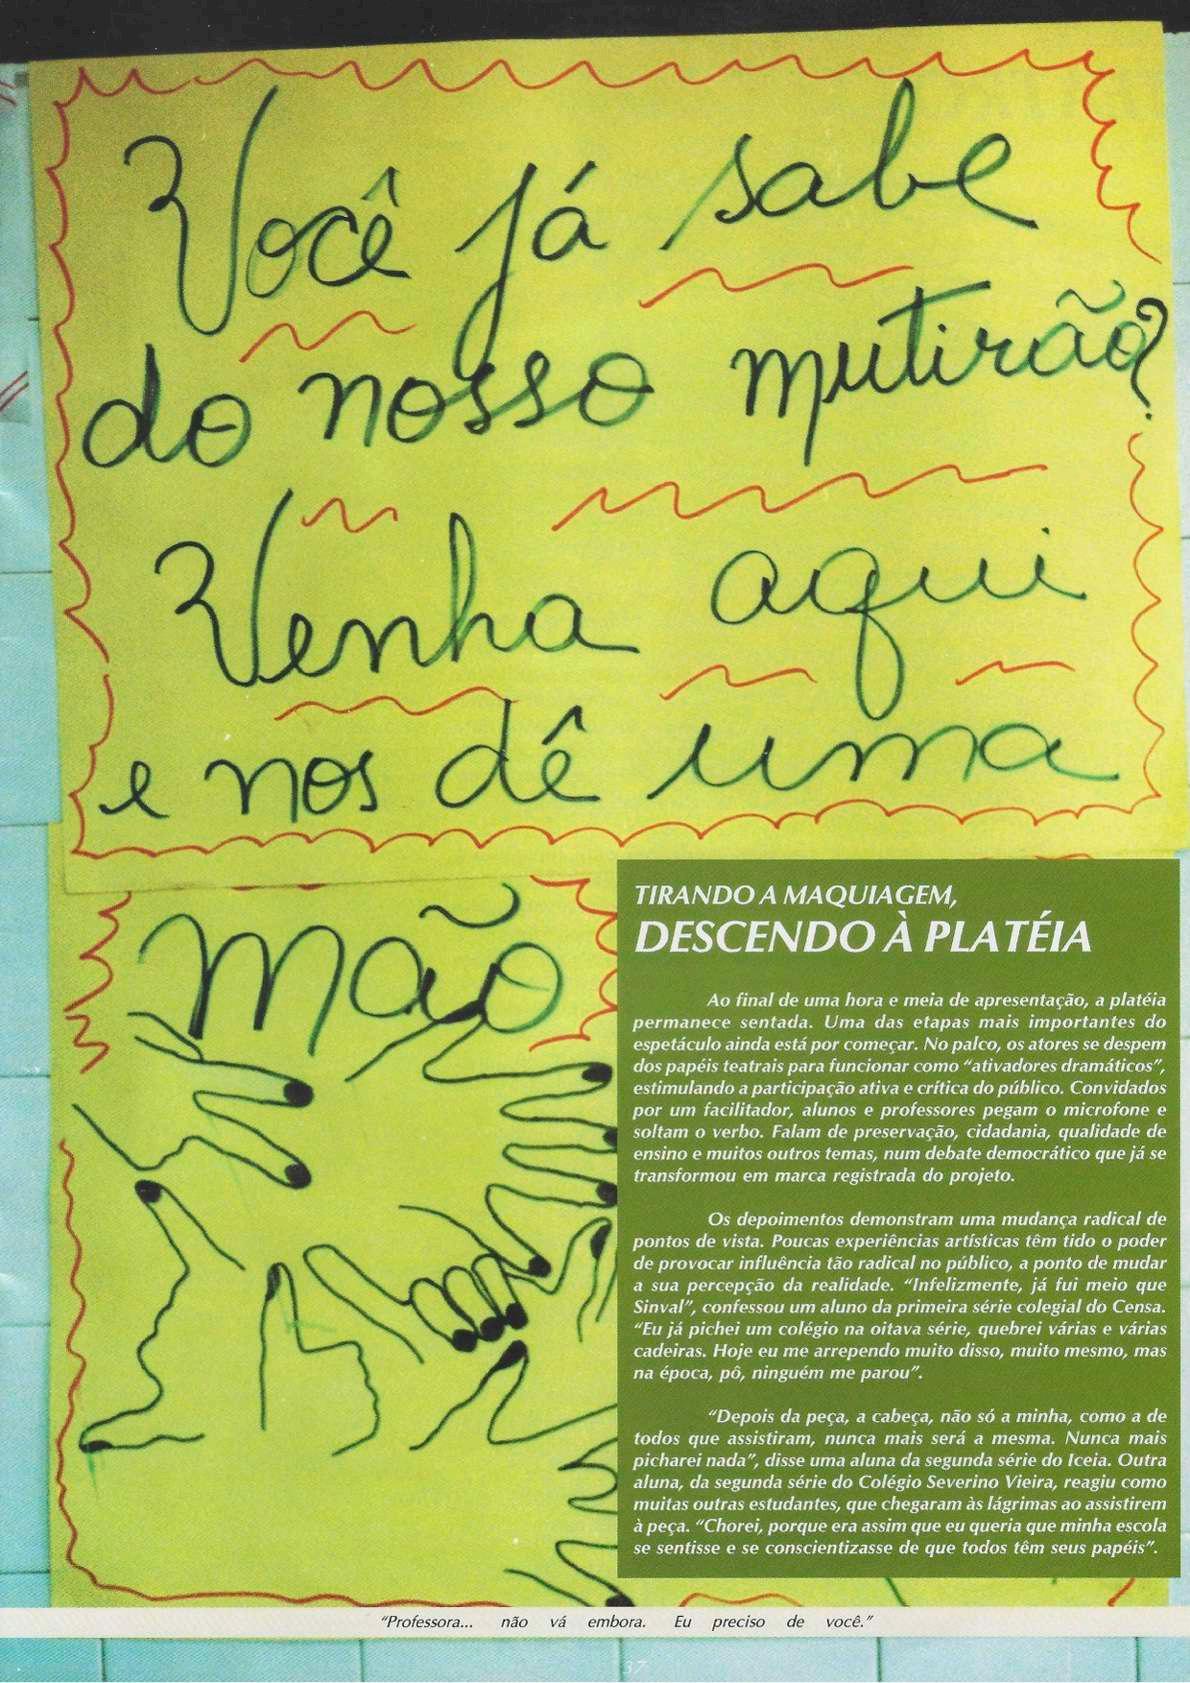 Você já sabe
do nosso mutirão?
Venha aqui
e nos dê uma
mão
TIRANDO A MAQUIAGEM,
DESCENDO À PLATÉIA
Ao final de uma hora e meia de apresentação, a platéia
permanece sentada. Uma das etapas mais importantes do
espetáculo ainda está por começar. No palco, os atores se despem
dos papéis teatrais para funcionar como “ativadores dramáticos”,
estimulando a participação ativa e crítica do público. Convidados
por um facilitador, alunos e professores pegam o microfone e
soltam o verbo. Falam de preservação, cidadania, qualidade de
ensino e muitos outros temas, num debate democrático que já se
transformou em marca registrada do projeto.
Os depoimentos demonstram uma mudança radical de
pontos de vista. Poucas experiências artísticas têm tido o poder
de provocar influência tão radical no público, a ponto de mudar
a sua percepção da realidade. “Infelizmente, já fui meio que
Sinval”, confessou um aluno da primeira série colegial do Censa.
“Eu já pichei um colégio na oitava série, quebrei várias e várias
cadeiras. Hoje eu me arrependo muito disso, muito mesmo, mas
na época, pô, ninguém me parou”.
“Depois da peça, a cabeça, não só a minha, como a de
todos que assistiram, nunca mais será a mesma. Nunca mais
picharei nada”, disse uma aluna da segunda série do Iceia. Outra
aluna, da segunda série do Colégio Severino Vieira, reagiu como
muitas outras estudantes, que chegaram às lágrimas ao assistirem
à peça. “Chorei, porque era assim que eu queria que minha escola
se sentisse e se conscientizasse de que todos têm seus papéis”.
“Professora... não vá embora. Eu preciso de você.”
37